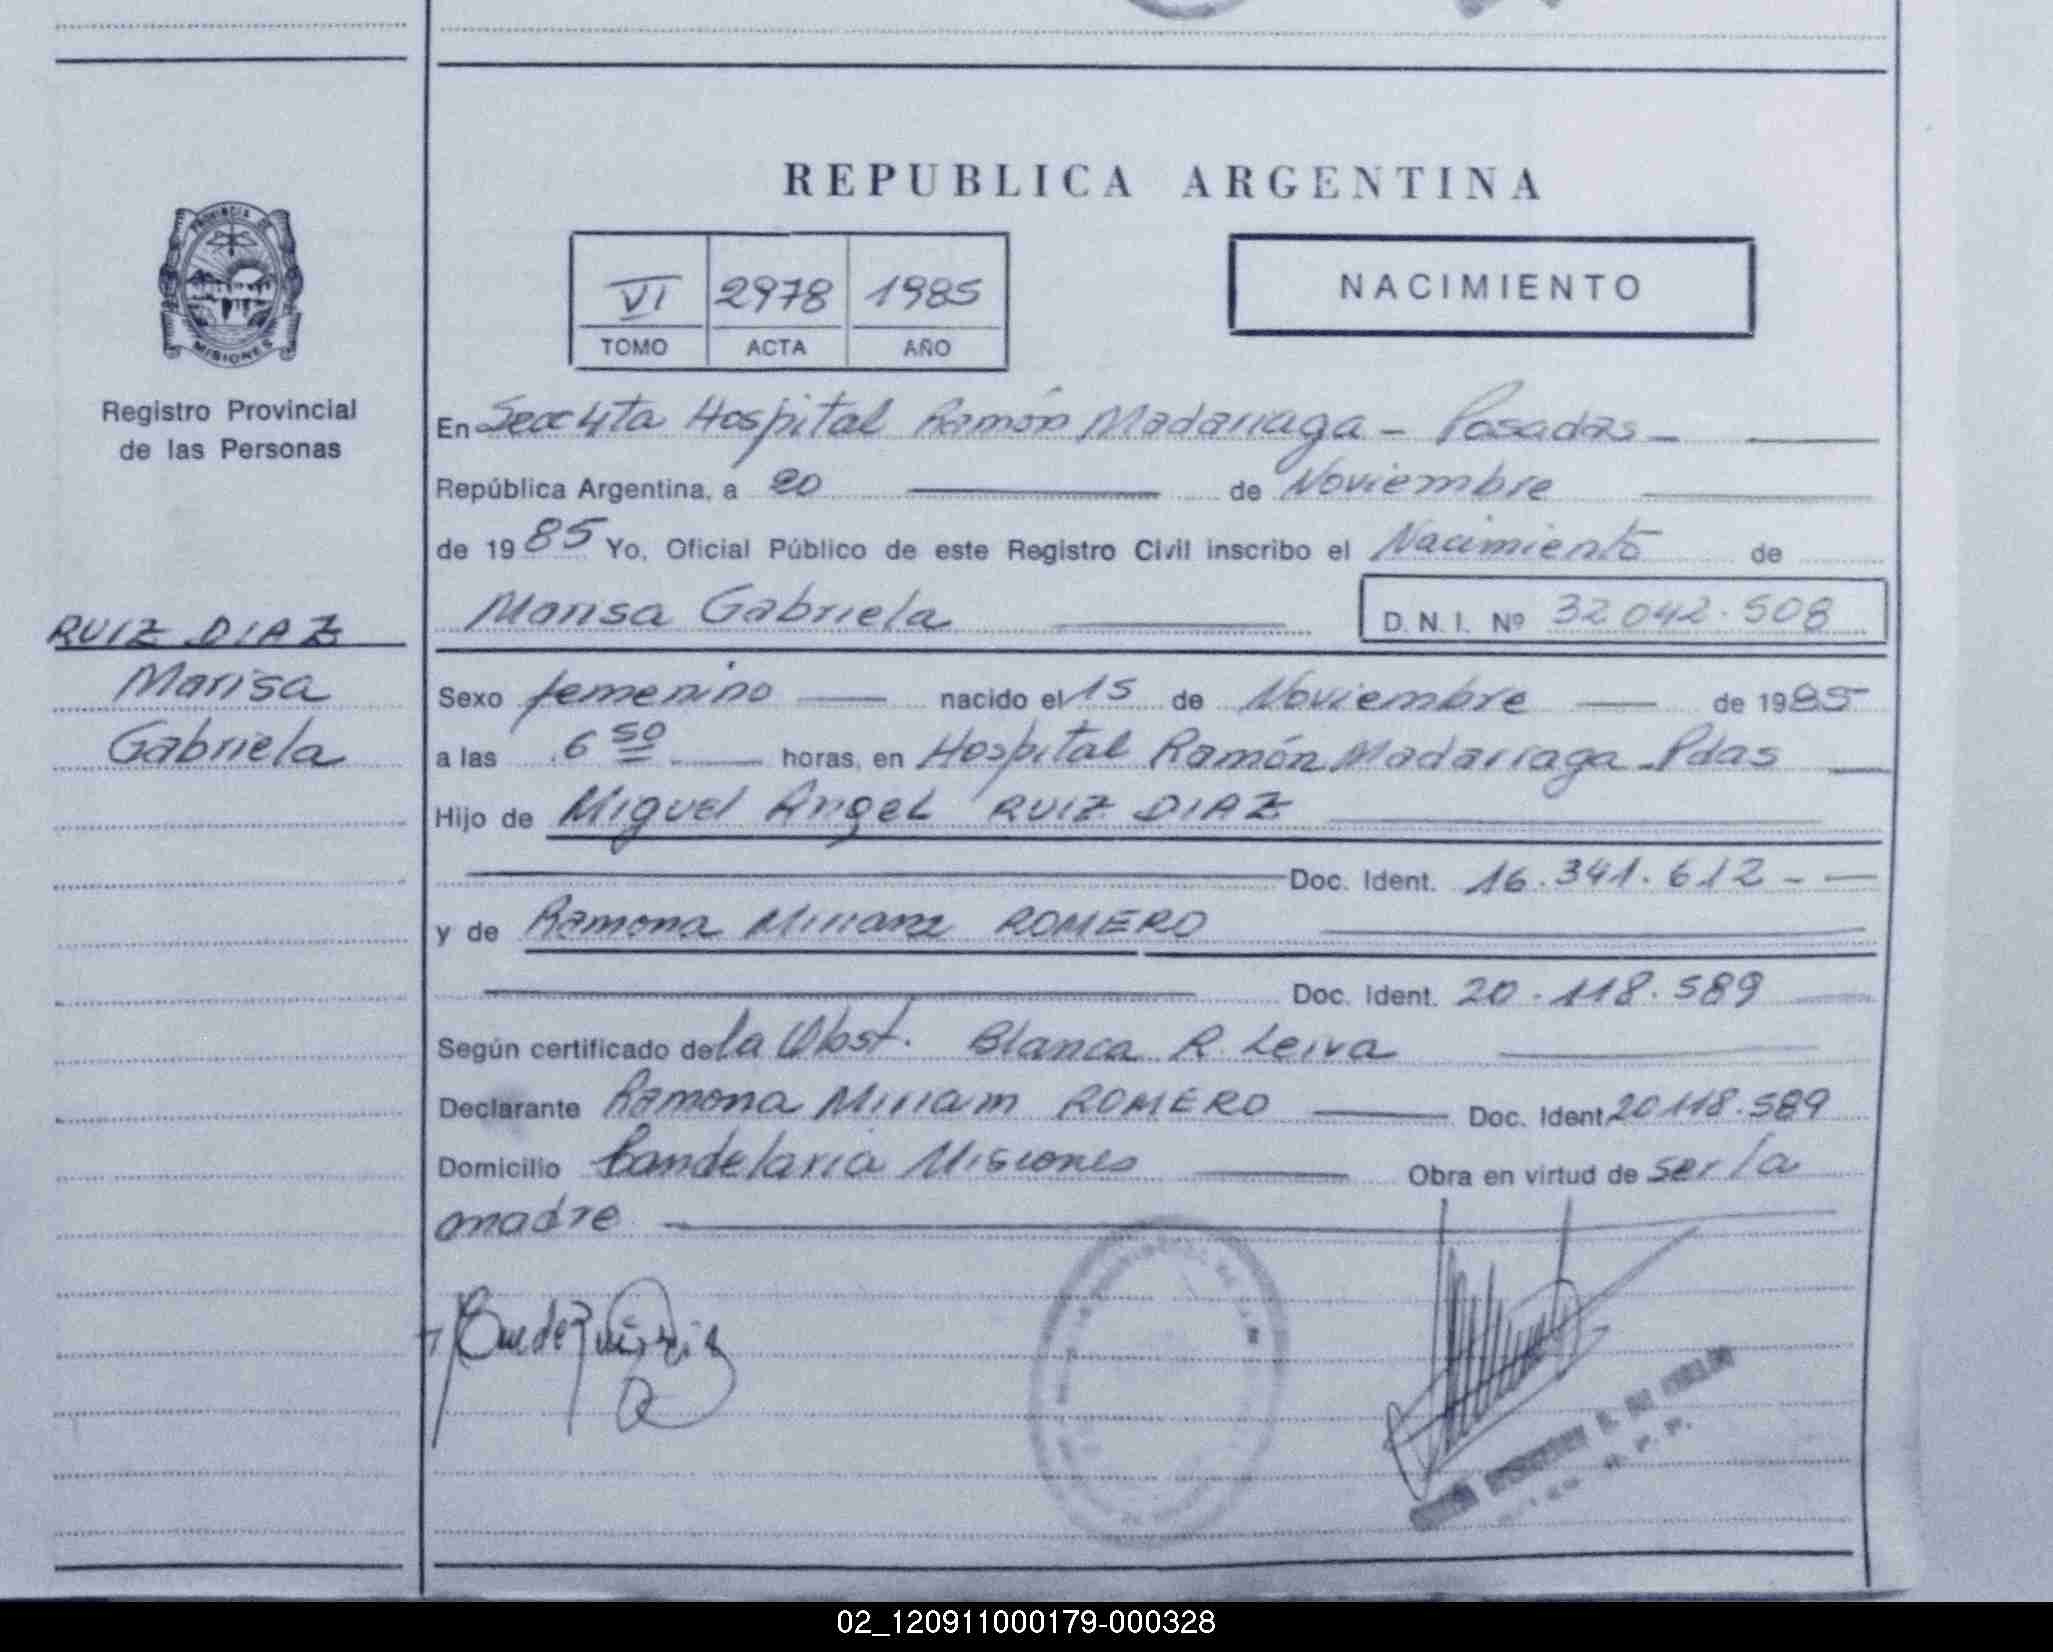 REPUBLICA ARGENTINA
VI 2978 1985
TOMO ACTA AÑO
NACIMIENTO
PROVINCIA DE
MISIONES
Registro Provincial
de las Personas
RUIZ DIAZ
Marisa
Gabriela
En Secc 4ta Hospital Ramón Madarriaga - Posadas -
República Argentina, a 20 de Noviembre
de 1985 Yo, Oficial Público de este Registro Civil inscribo el Nacimiento de
Marisa Gabriela D.N.I. Nº 32.042.508
Sexo femenino nacido el 15 de Noviembre de 1985
a las 6 50 horas, en Hospital Ramón Madarriaga - Pdas
Hijo de Miguel Angel RUIZ DIAZ
Doc. Ident. 16.341.612 -
y de Ramona Miriam ROMERO
Doc. Ident. 20.118.589
Según certificado de la Obst. Blanca R. Leiva
Declarante Ramona Miriam ROMERO Doc. Ident. 20118.589
Domicilio Candelaria Misiones Obra en virtud de ser la
madre
02_120911000179-000328